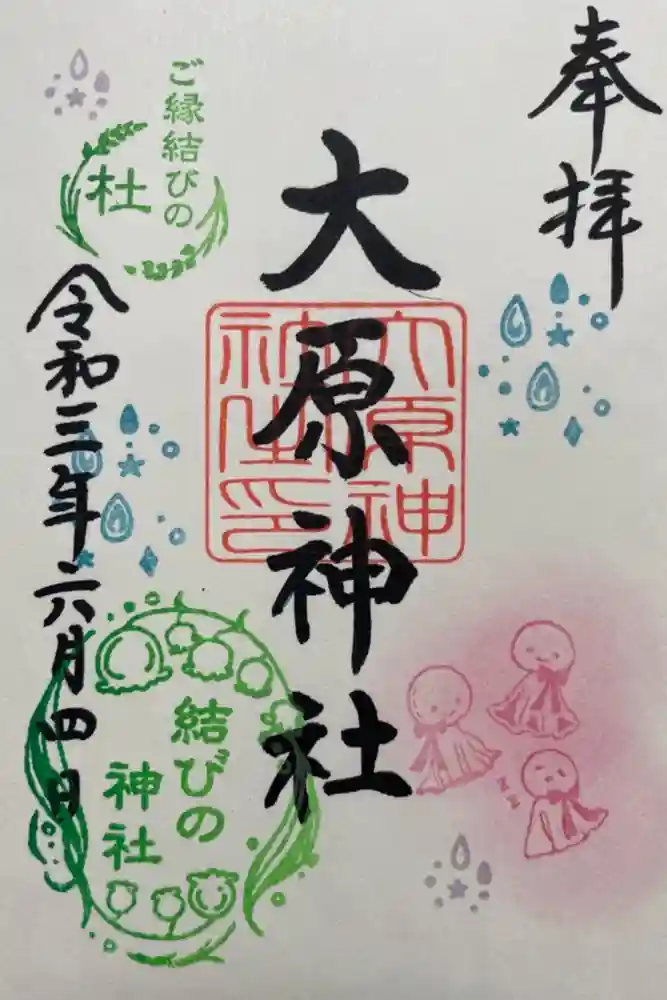 奉拝
大原神社
大原神社之印
ご縁結びの
杜
令和三年六月四日
結びの
神社
zz